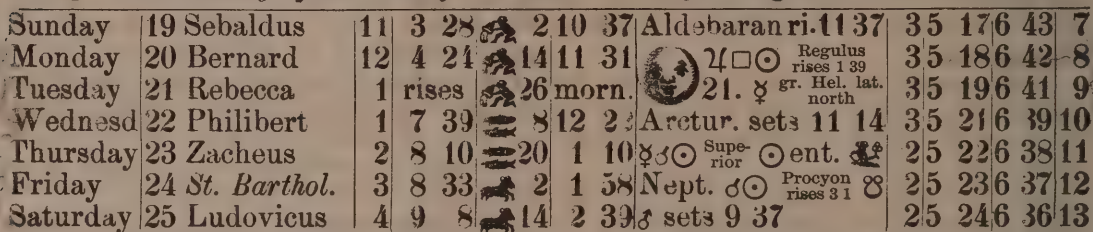 Sunday 19 Sebaldus 11 3 28 2 10 37 Aldebaran ri. 11 37 3 5 17 6 43 7
Monday 20 Bernard 12 4 24 14 11 31 ♃□☉ Regulus rises 1 39 3 5 18 6 42 8
Tuesday 21 Rebecca 1 rises 26 morn. 21. ☿ gr. Hel. lat. north 3 5 19 6 41 9
Wednesd 22 Philibert 1 7 39 8 12 2 Arctur. sets 11 14 3 5 21 6 39 10
Thursday 23 Zacheus 2 8 10 20 1 10 ☿☌☉ Supe-rior ☉ ent. ♍ 2 5 22 6 38 11
Friday 24 St. Barthol. 3 8 33 2 1 58 Nept. ☌☉ Procyon rises 3 1 ☋ 2 5 23 6 37 12
Saturday 25 Ludovicus 4 9 8 14 2 39 ♂ sets 9 37 2 5 24 6 36 13